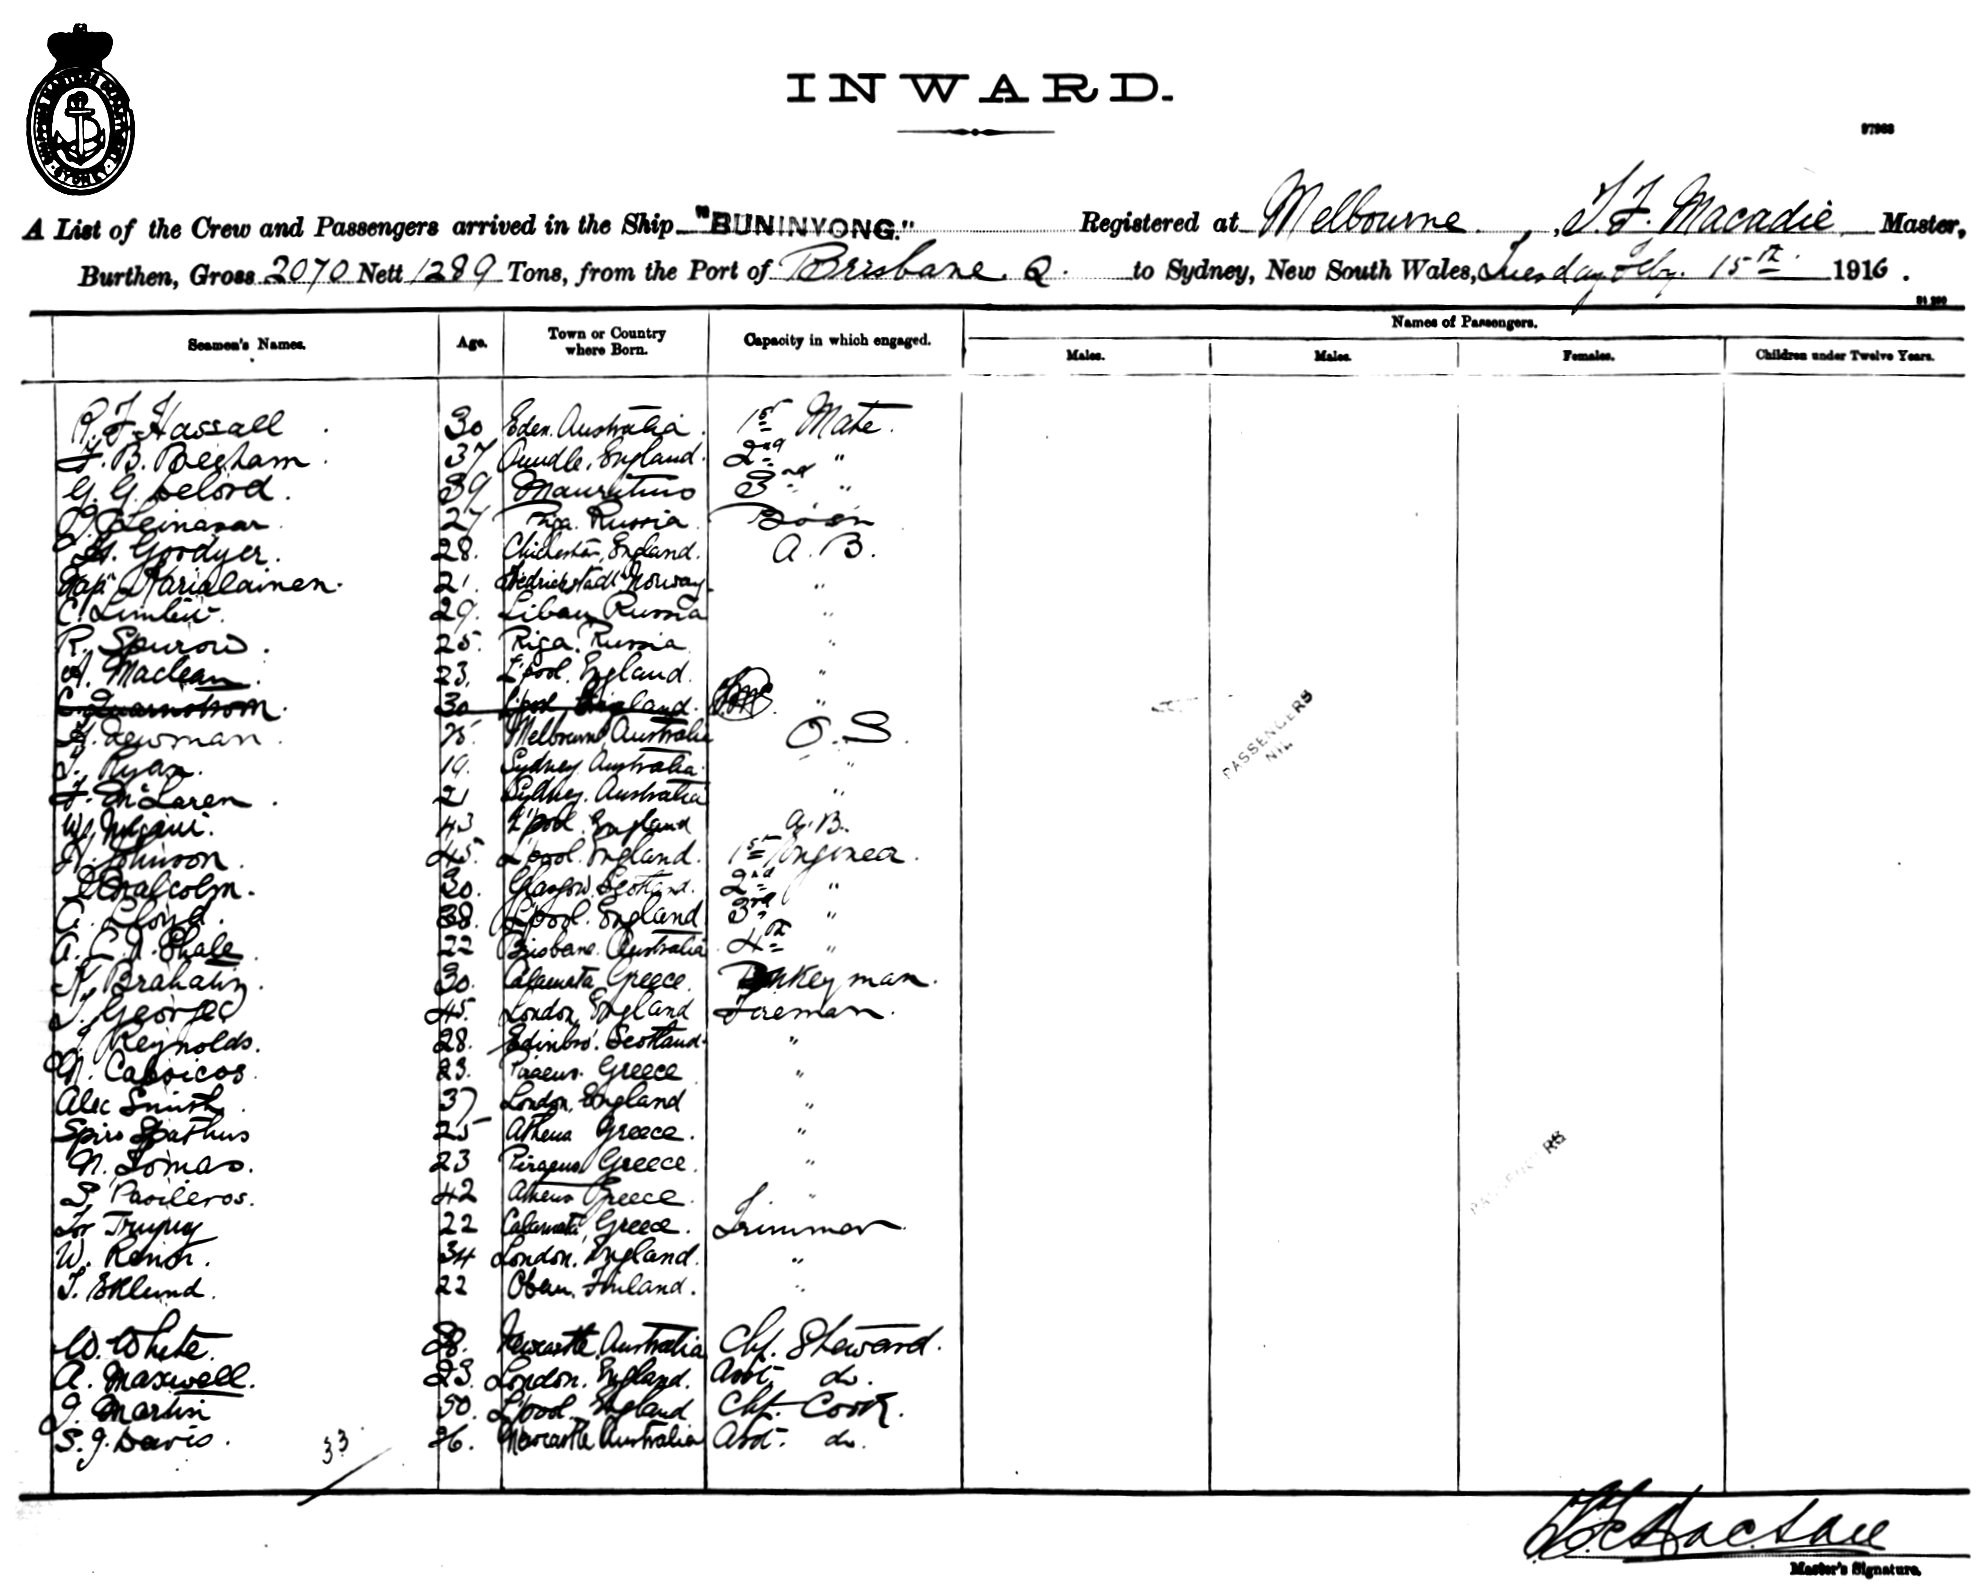 INWARD.
97963
A List of the Crew and Passengers arrived in the Ship "BUNINYONG." Registered at Melbourne, T. F. Macadie Master,
Burthen, Gross 2070 Nett 1289 Tons, from the Port of Brisbane Q. to Sydney, New South Wales, Tuesday Feby. 15th 1916.
Names of Passengers.
Seamen's Names. Age. Town or Country where Born. Capacity in which engaged. Males. Males. Females. Children under Twelve Years.
R. F. Hassall 30 Eden. Australia. 1st Mate.
F. B. Beeham. 37 Oundle, England. 2nd "
G. G. Delord. 39 Mauritius 3rd "
27 Riga. Russia Bosn
H. Goodyer. 28. Chichester, England. A. B.
Karialainen. 21. Fredrickstadt Norway. "
C. 29. Libau Russia "
R. Spurow. 25. Riga. Russia "
A. Maclean. 23. L'pool. England. "
C. Quarnstrom. 30 L'pool England. "
H. Newman. Melbourne Australia O. S.
T. Ryan. 19. Sydney Australia. "
F. McLaren. 21 Sydney. Australia "
W. 43 L'pool. England A. B.
H. Johnson. 45. L'pool. England. 1st Engineer.
Malcolm. 30. Glasgow. Scotland. 2nd "
A. Lloyd. 38. L'pool. England 3rd "
A. C. Phale 22 Brisbane. Australia. 4th "
Brahalin. 30. Calamata Greece. Donkeyman.
T. George 45. London, England Fireman.
J. Reynolds. 28. Edinbro'. Scotland. "
N. Cabsicos. 23. Piraeus. Greece "
Alec Smith. 37 London, England "
Spiro Spathus 25 Athens Greece. "
N. Lomas. 23 Piraeus Greece. "
S. Pasileros. 42 Athens Greece. "
22 Calamata, Greece. Trimmer.
W. 34 London. England. "
T. Eklund. 22 Finland. "
W. White. 38. Newcastle. Australia Chf. Steward.
A. Maxwell. 23. London. England. Asst. do.
J. Martin 50. L'pool England Chf. Cook.
S. J. Davis. 26. Newcastle Australia Asst. do.
33
PASSENGERS
NIL
PASSENGERS
Master's Signature.